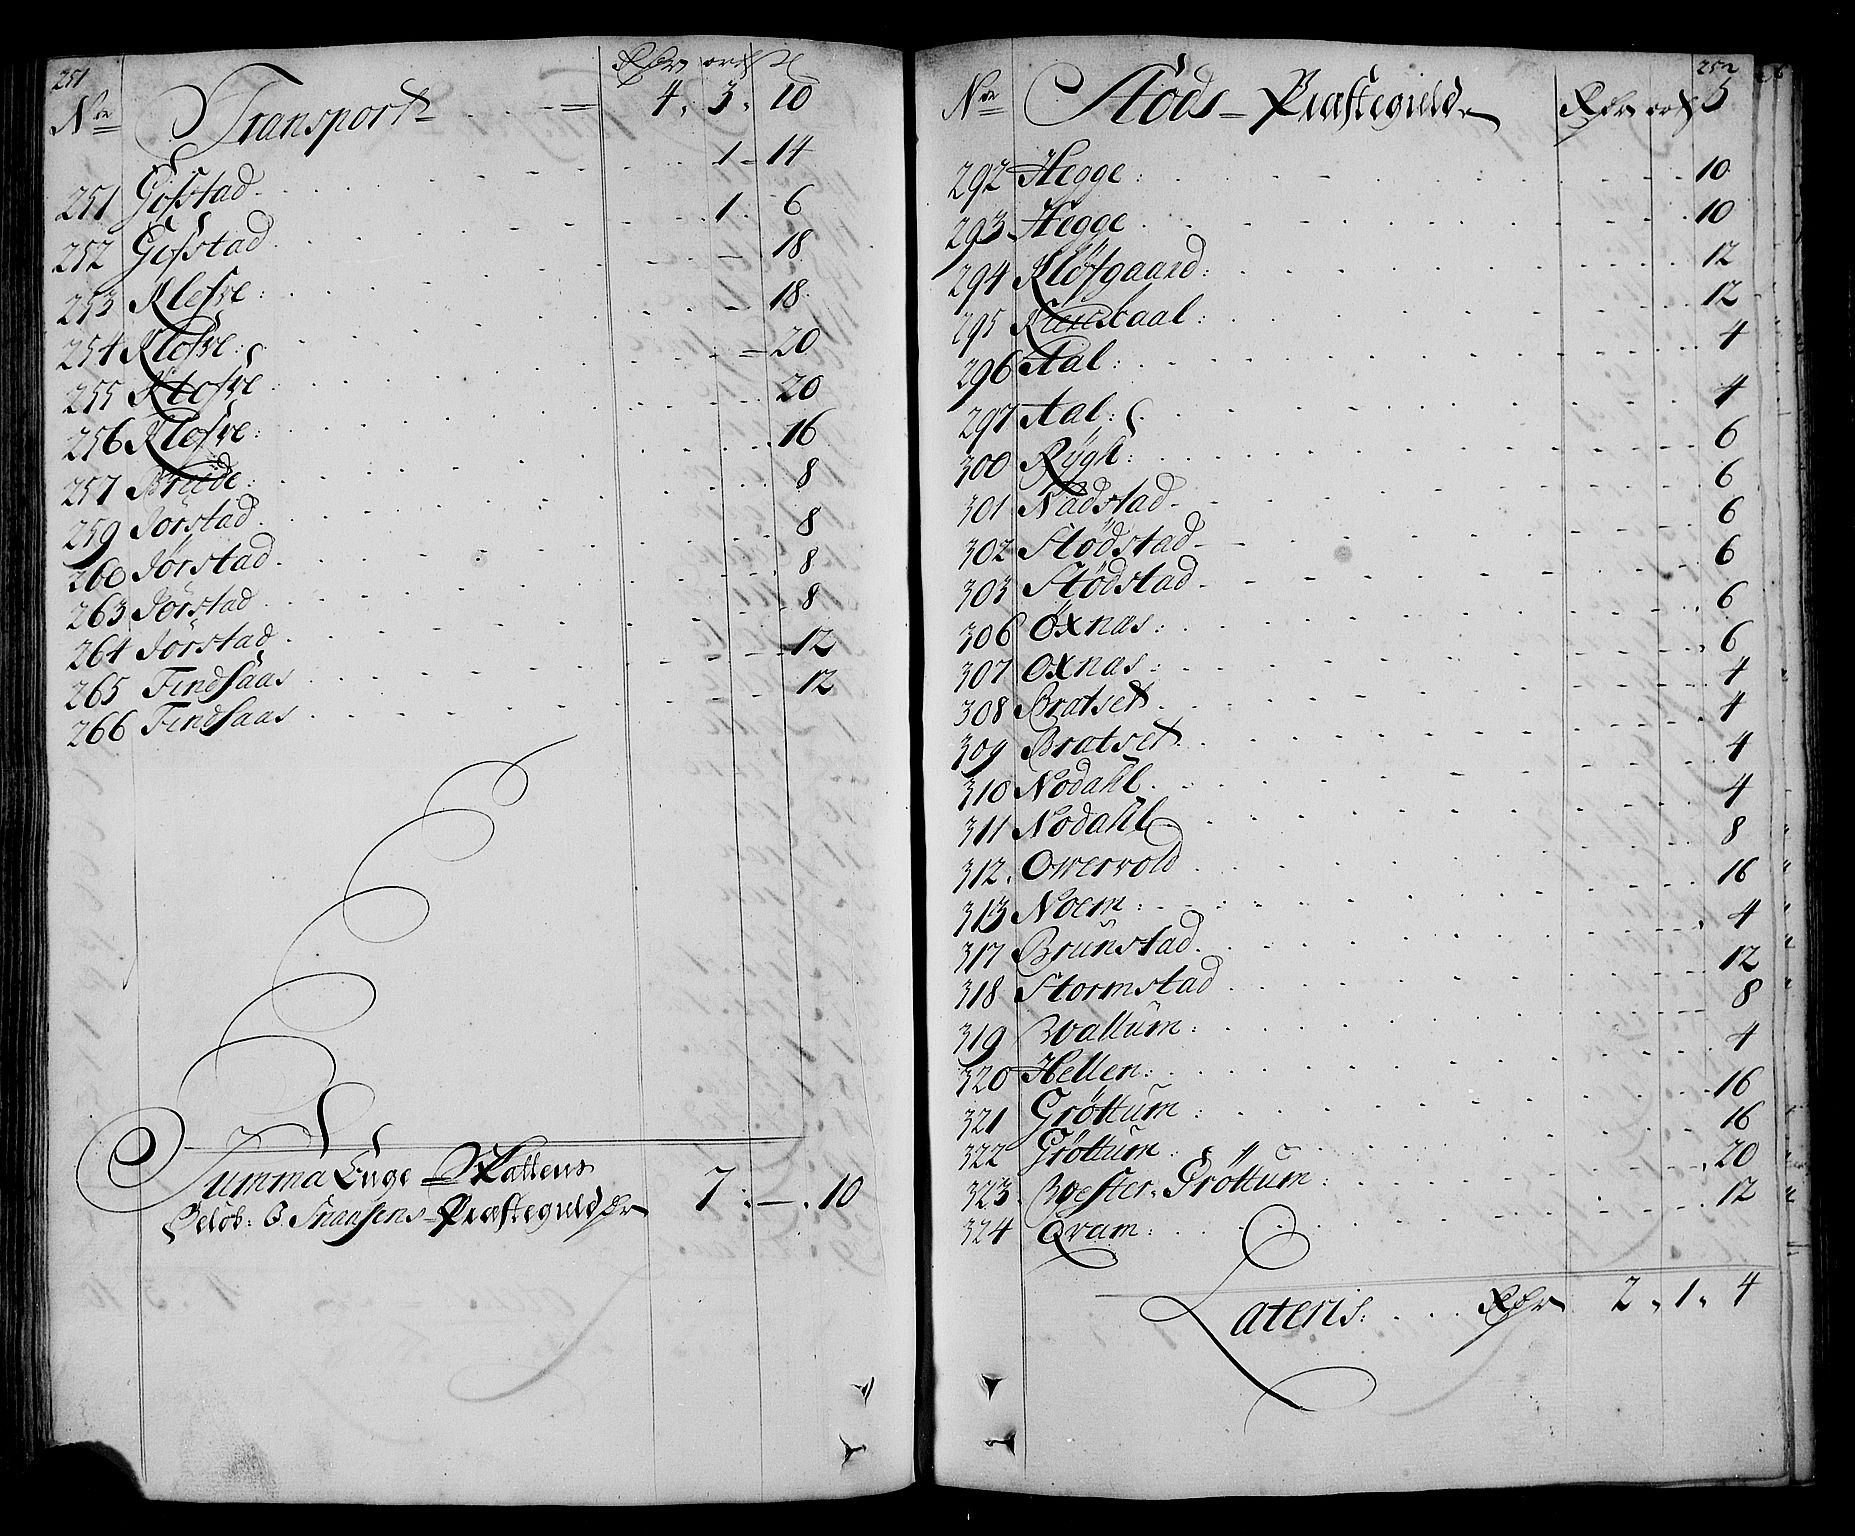 251
Rdr ort ß
Nr Transport 4. 3. 10
251 Gifstad 1 - 14
252 Gifstad 1. 6
253 Klefve: - 18
254 Klefve: - 18
255 Klefve: - 20
256 Klefve: 20
257 Brede: 16
259 Jörstad 8
260 Jörstad 8
263 Jörstad 8
264 Jörstad 8
265 Findsaas 12
266 Findsaas 12
Summa Enge Skattens
Belöb: Snausens Præstegield Rdr 7: — . 10
252
Nr Stöds - Præstegield Rdr ort ß
292 Hegge: 10
293 Hegge 10
294 Klöfgaard: 12
295 12
296 Aal: 4
297 Aal: 4
300 Rÿgh: 6
301 Nadstad 6
302 Stödstad 6
303 Stödstad 6
306 Öxnæs: 6
307 Oxnæs: 6
308 Bratset 4
309 Bratset 4
310 Nodahl 4
311 Nodahl 4
312. Overvold 8
313 Noem: 16
317 Brunstad 4
318 Stormstad 12
319 Wallum: 8
320 Hellen: 4
321 Gröttum: 16
322 Gröttum 16
323. Wester. Gröttum: 20
324 Qvam: 12
Lateris: Rdr 2. 1. 4